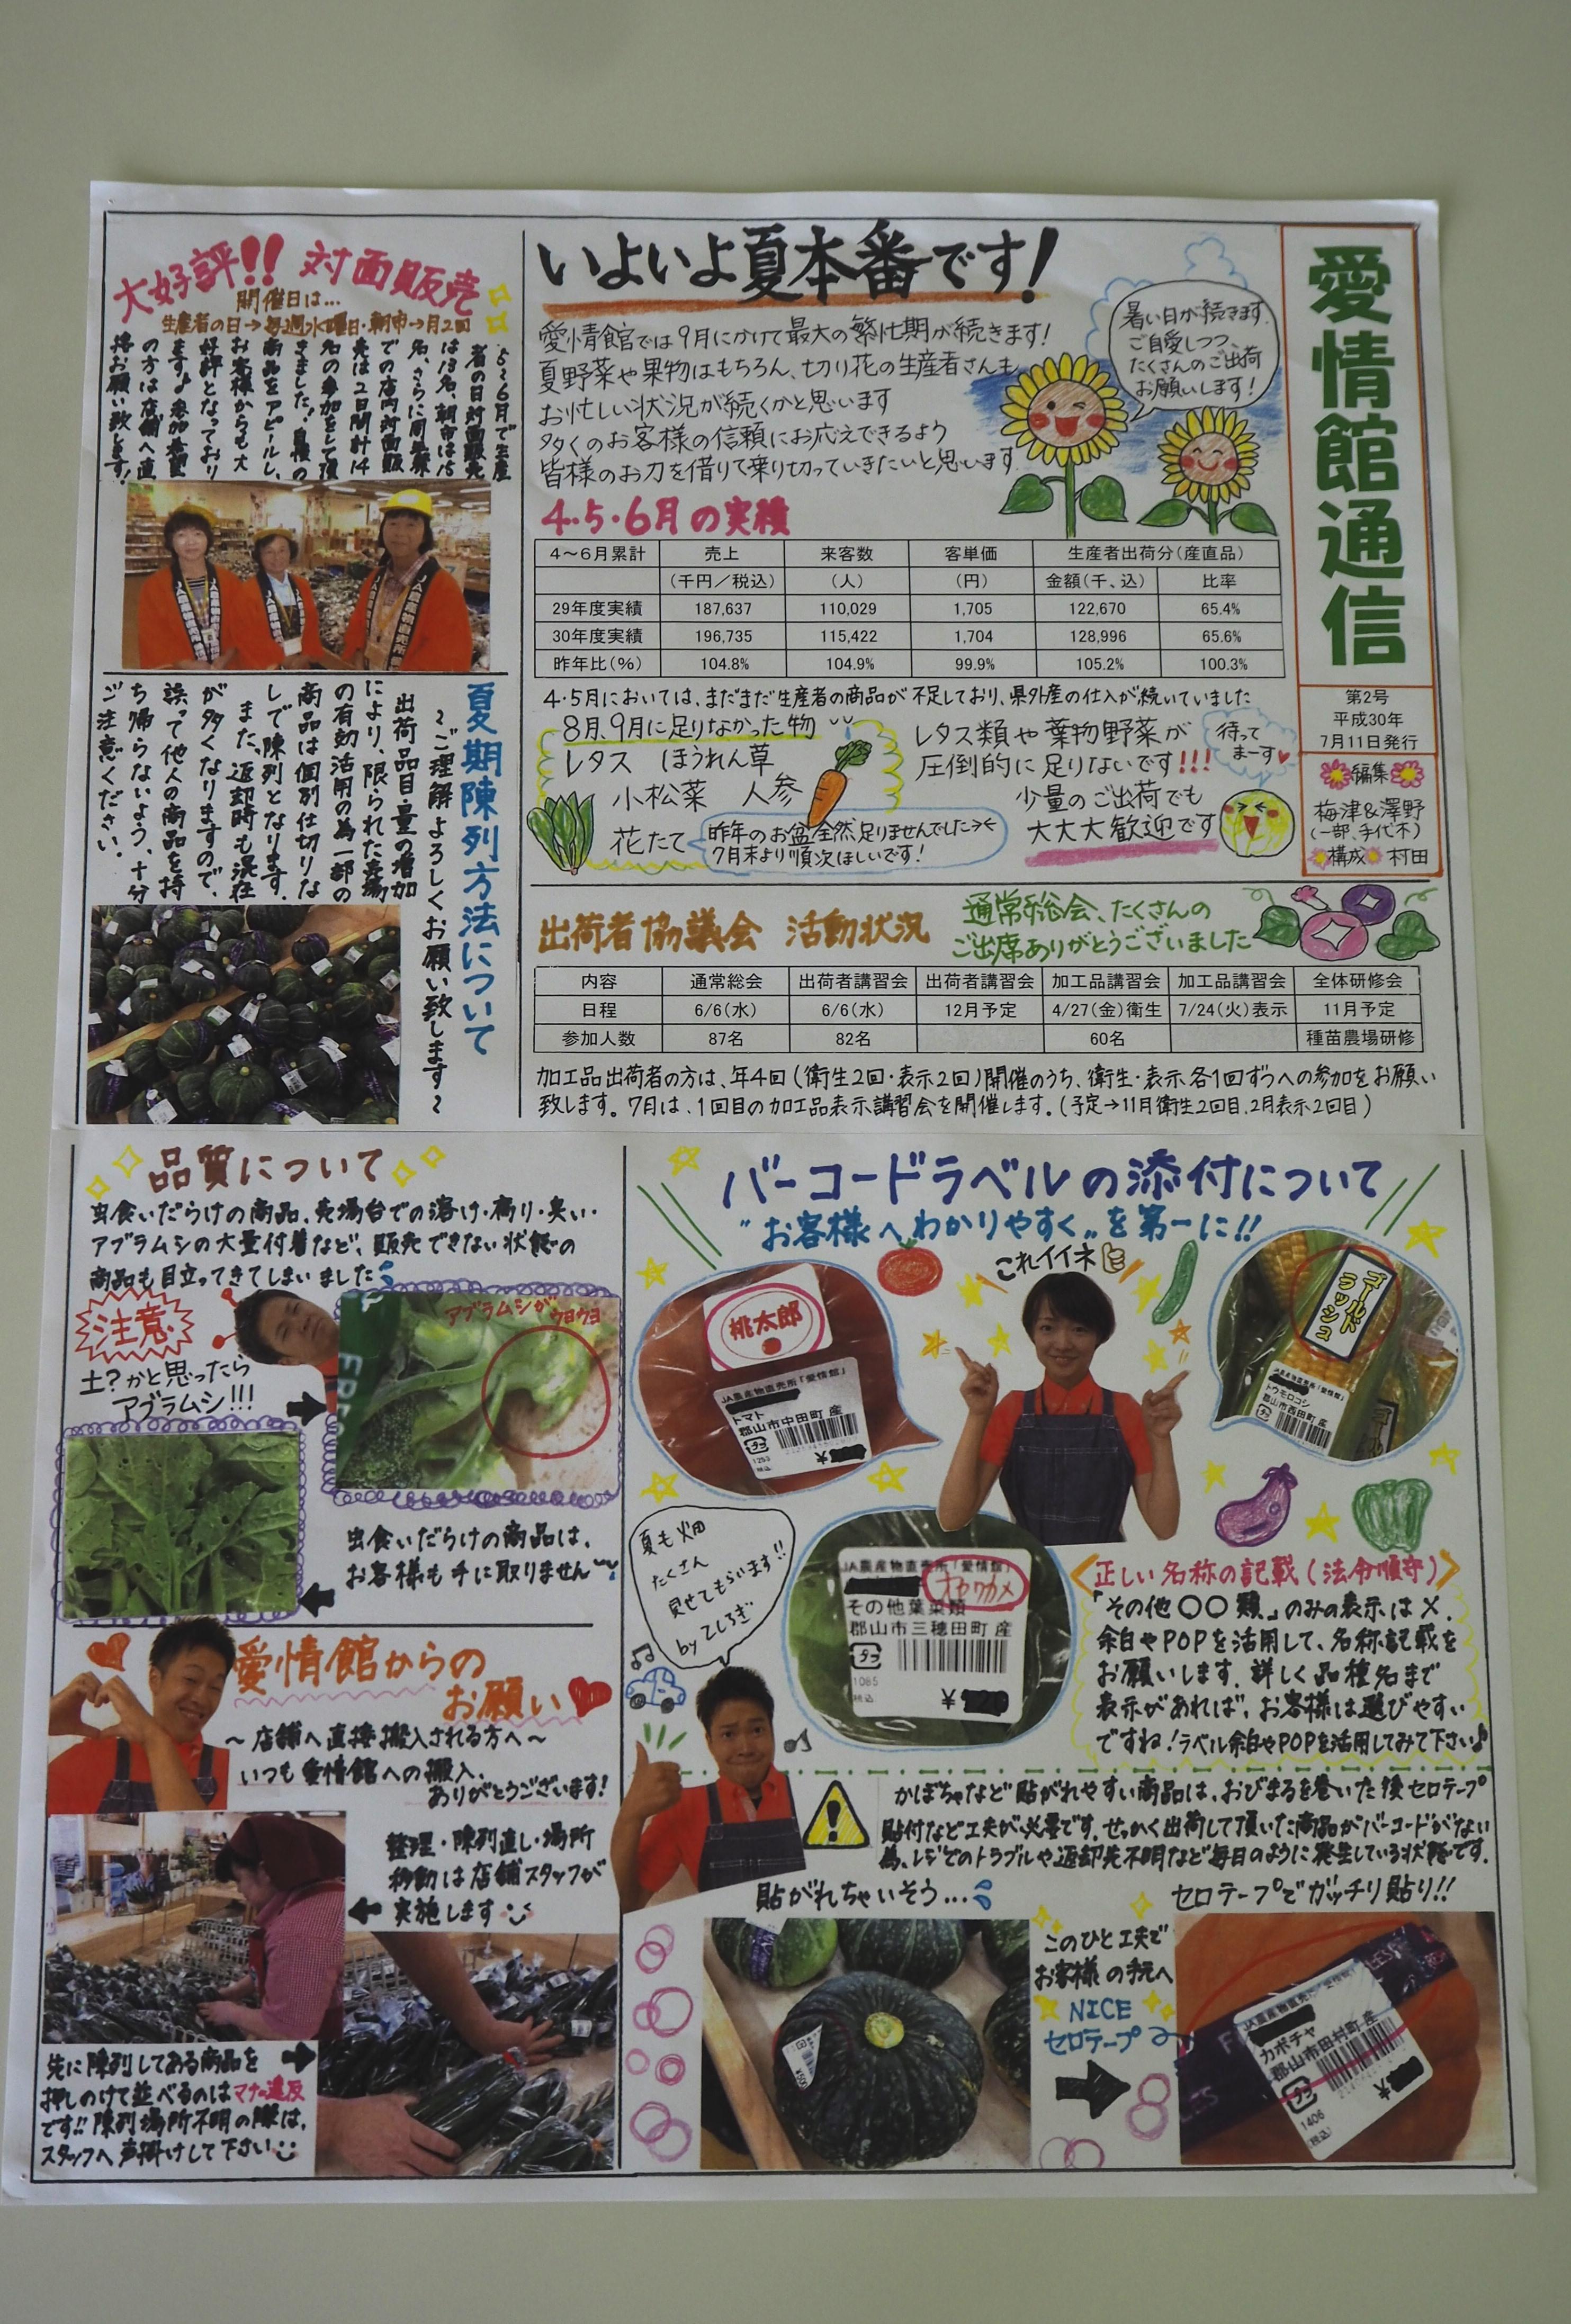 愛情館通信
第2号
平成30年
7月11日発行
編集
梅津&澤野
(一部、手代木)
構成 村田
いよいよ夏本番です!
愛情館では9月にかけて最大の繁忙期が続きます!
夏野菜や果物はもちろん、切り花の生産者さんも
お忙しい状況が続くかと思います
多くのお客様の信頼にお応えできるよう
皆様のお力を借りて乗り切っていきたいと思います
暑い日が続きます。
ご自愛しつつ、
たくさんのご出荷
お願いします!
4・5・6月の実績
4~6月累計 売上 来客数 客単価 生産者出荷分(産直品)
(千円/税込) (人) (円) 金額(千、込) 比率
29年度実績 187,637 110,029 1,705 122,670 65.4%
30年度実績 196,735 115,422 1,704 128,996 65.6%
昨年比(%) 104.8% 104.9% 99.9% 105.2% 100.3%
4・5月においては、まだまだ生産者の商品が不足しており、県外産の仕入が続いていました
8月、9月に足りなかった物
レタス ほうれん草
小松菜 人参
花たて
昨年のお盆全然足りませんでした><
7月末より順次ほしいです!
レタス類や葉物野菜が
圧倒的に足りないです!!!
少量のご出荷でも
大大大歓迎です
待って
まーす♥
出荷者協議会 活動状況
通常総会、たくさんの
ご出席ありがとうございました
内容 通常総会 出荷者講習会 出荷者講習会 加工品講習会 加工品講習会 全体研修会
日程 6/6(水) 6/6(水) 12月予定 4/27(金)衛生 7/24(火)表示 11月予定
参加人数 87名 82名 60名 種苗農場研修
加工品出荷者の方は、年4回(衛生2回・表示2回)開催のうち、衛生・表示各1回ずつへの参加をお願い
致します。7月は、1回目の加工品表示講習会を開催します。(予定→11月衛生2回目、2月表示2回目)
大好評!! 対面販売
開催日は…
生産者の日→毎週水曜日・朝市→月2回
5~6月で生産
者の日対面販売
は13名、朝市は15
名、さらに同
での店内対面販
売は2日間計14
名の参加をして頂
きました!自慢の
商品をアピールし、
お客様からも大
好評となっており
ます♪参加希望
の方は店舗へ直
接お願い致します!
夏期陳列方法について
~ご理解よろしくお願い致します~
出荷品目・量の増加
により、限られた売場
の有効活用の為一部の
商品は個別仕切りな
しで陳列となります。
また、返却時も混在
が多くなりますので、
誤って他人の商品を持
ち帰らないよう、十分
ご注意ください。
品質について
虫食いだらけの商品、売場台での溶け・腐り・臭い・
アブラムシの大量付着など、販売できない状態の
商品も目立ってきてしまいました
注意
土?かと思ったら
アブラムシ!!!
アブラムシが
ウヨウヨ
虫食いだらけの商品は、
お客様も手に取りません
愛情館からの
お願い♥
~店舗へ直接搬入される方へ~
いつも愛情館への搬入、
ありがとうございます!
整理・陳列直し・場所
移動は店舗スタッフが
実施します
先に陳列してある商品を
押しのけて並べるのはマナー違反
です!!陳列場所不明の際は、
スタッフへ声掛けして下さい
バーコードラベルの添付について
"お客様へわかりやすく"を第一に!!
これイイネ
桃太郎
JA農産物直売所「愛情館」
トマト
郡山市中田町 産
ゴールド
ラッシュ
JA農産物直売所「愛情館」
トウモロコシ
郡山市西田町 産
夏も畑
たくさん
見せてもらいます!!
by てしろぎ
JA農産物直売所「愛情館」
オカワカメ
その他葉菜類
郡山市三穂田町 産
1085
税込
¥
<正しい名称の記載(法令順守)>
「その他〇〇類」のみの表示は×。
余白やPOPを活用して、名称記載を
お願いします。詳しく品種名まで
表示があれば、お客様は選びやすい
ですね!ラベル余白やPOPを活用してみて下さい♪
かぼちゃなど貼がれやすい商品は、おびまるを巻いた後セロテープ
貼付など工夫が必要です。せっかく出荷して頂いた商品がバーコードがない
為、レジでのトラブルや返却先不明など毎日のように発生している状態です。
貼がれちゃいそう…
セロテープでガッチリ貼り!!
このひと工夫で
お客様の手元へ
NICE
セロテープ
JA農産物直売所「愛情館」
カボチャ
郡山市田村町 産
1406
(税込)